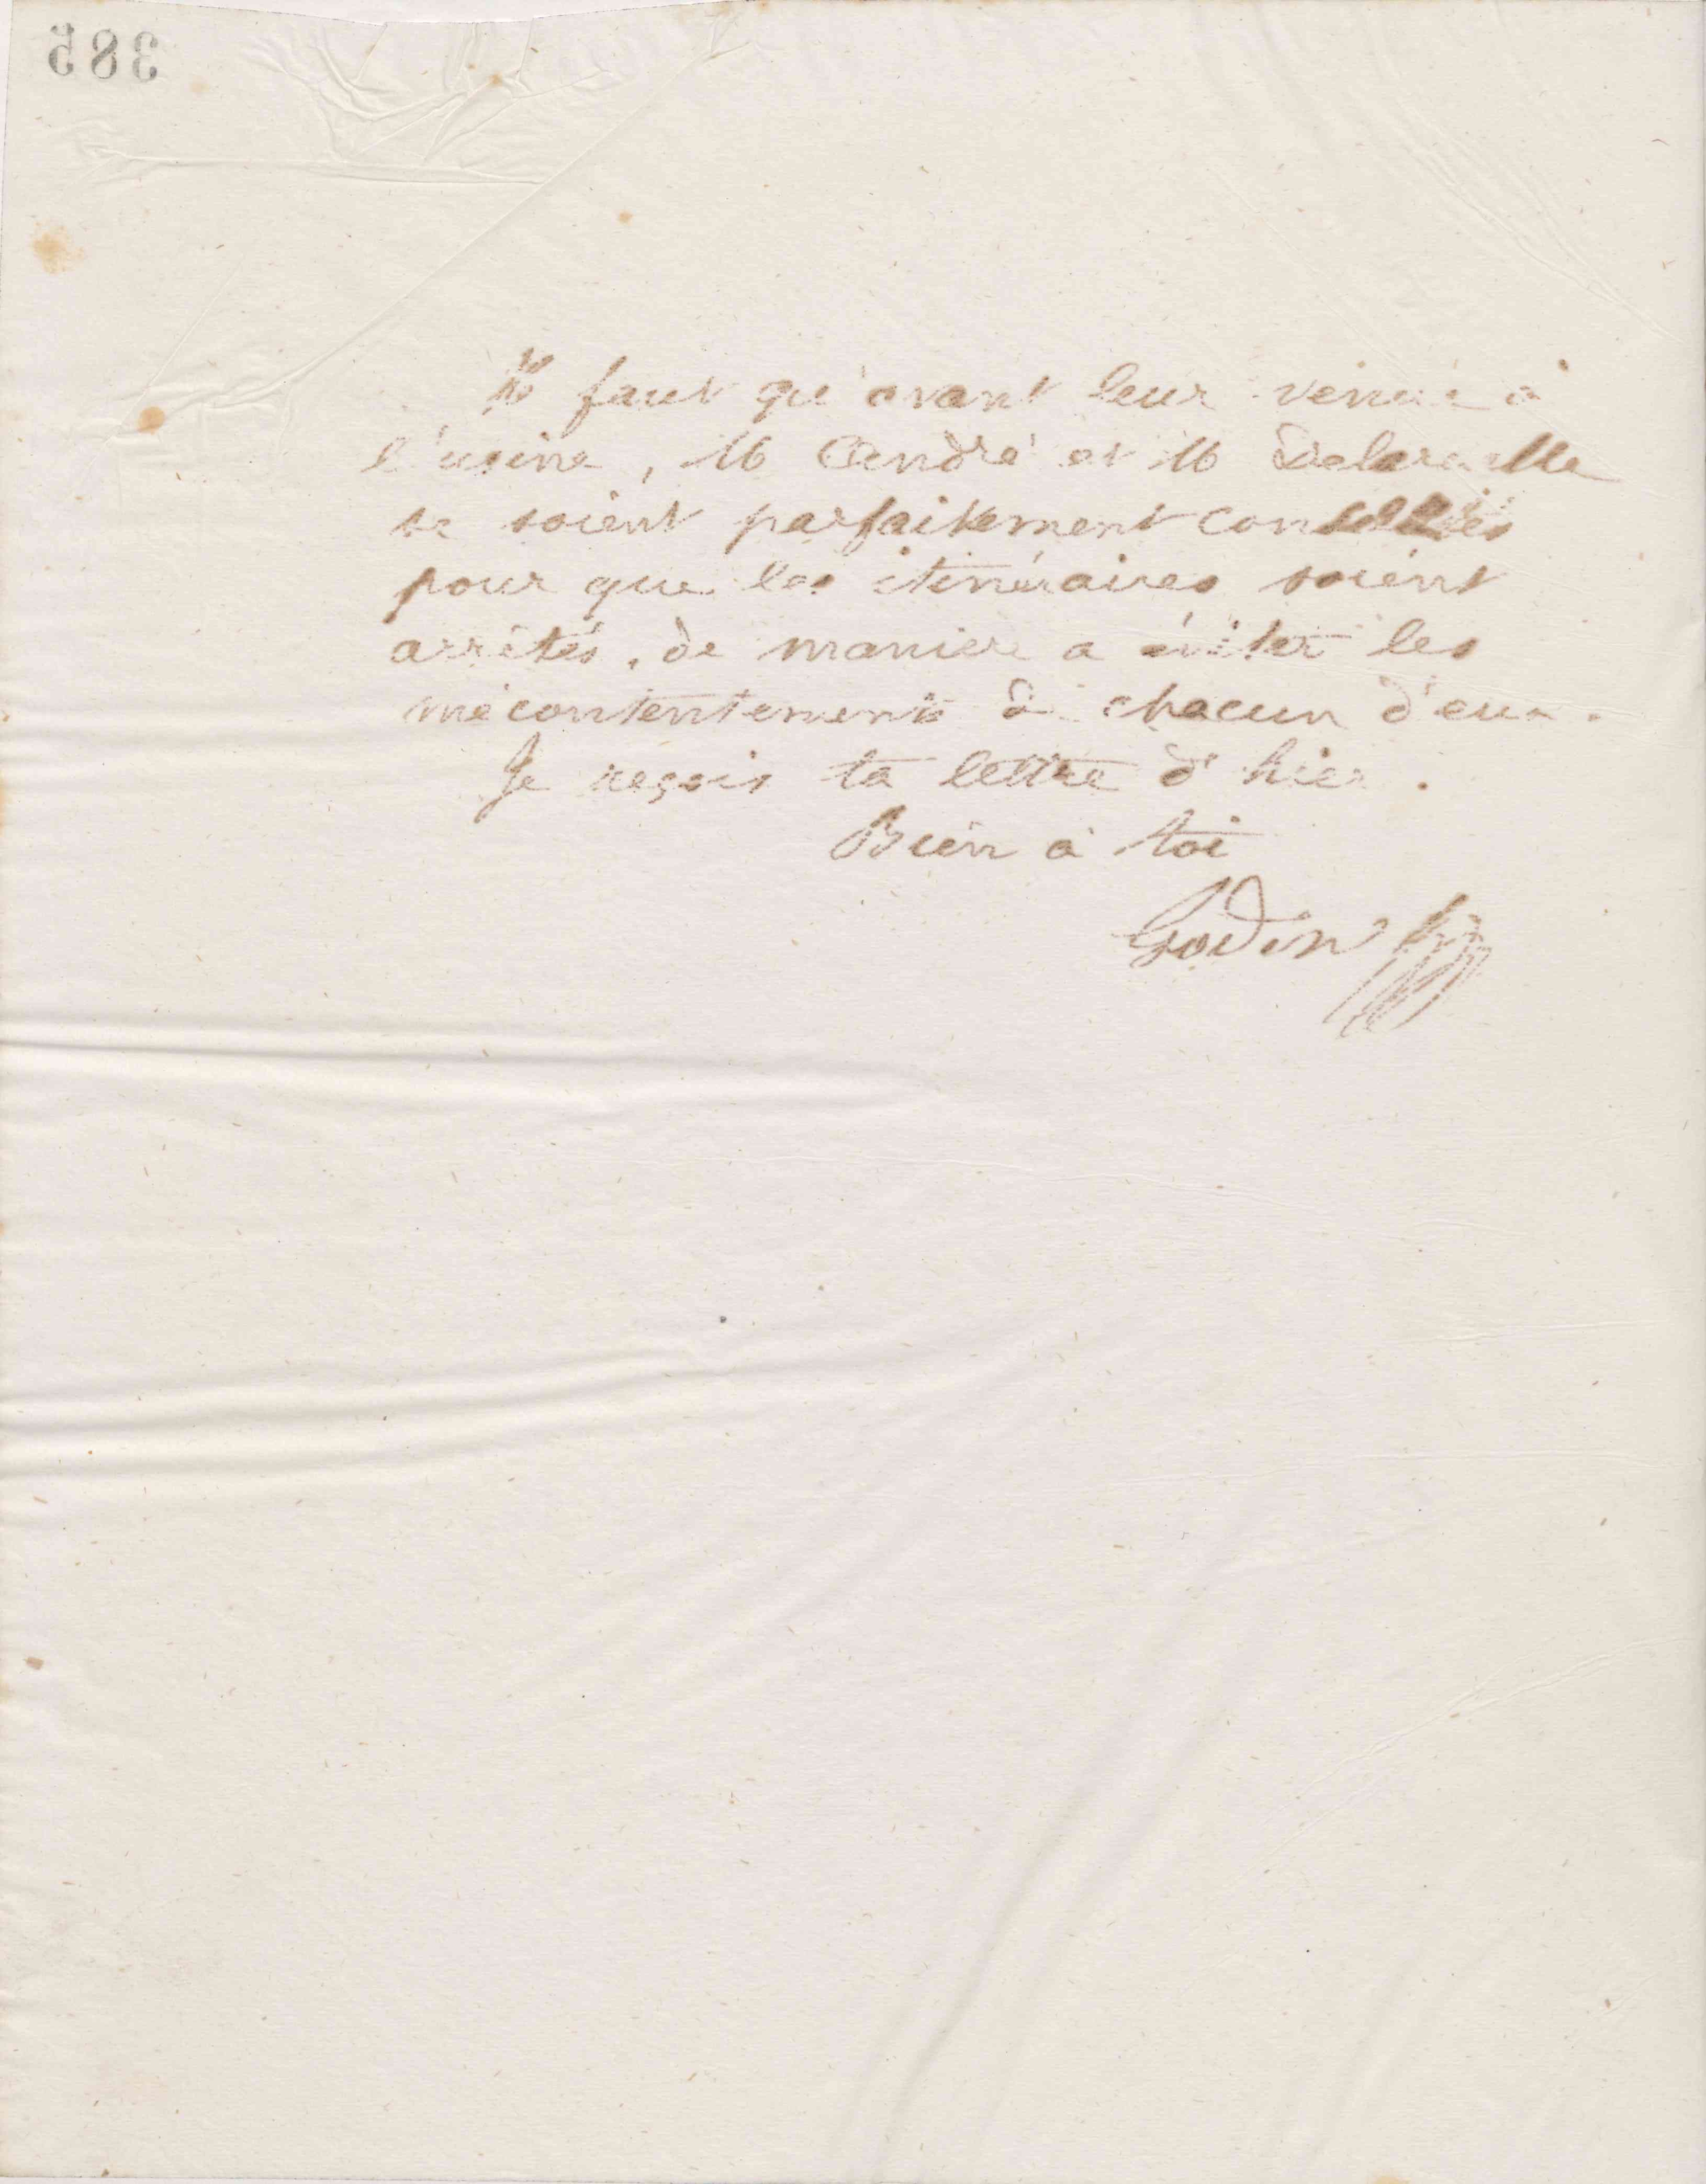 385
Il faut qu'avant leur venue à
l'usine, M André et M
se soient parfaitement
pour que les itinéraires soient
arrêtés, de maniere a éviter les
mécontentements de chacun d'eux.
Je reçois ta lettre d'hier.
Bien à toi
Godin